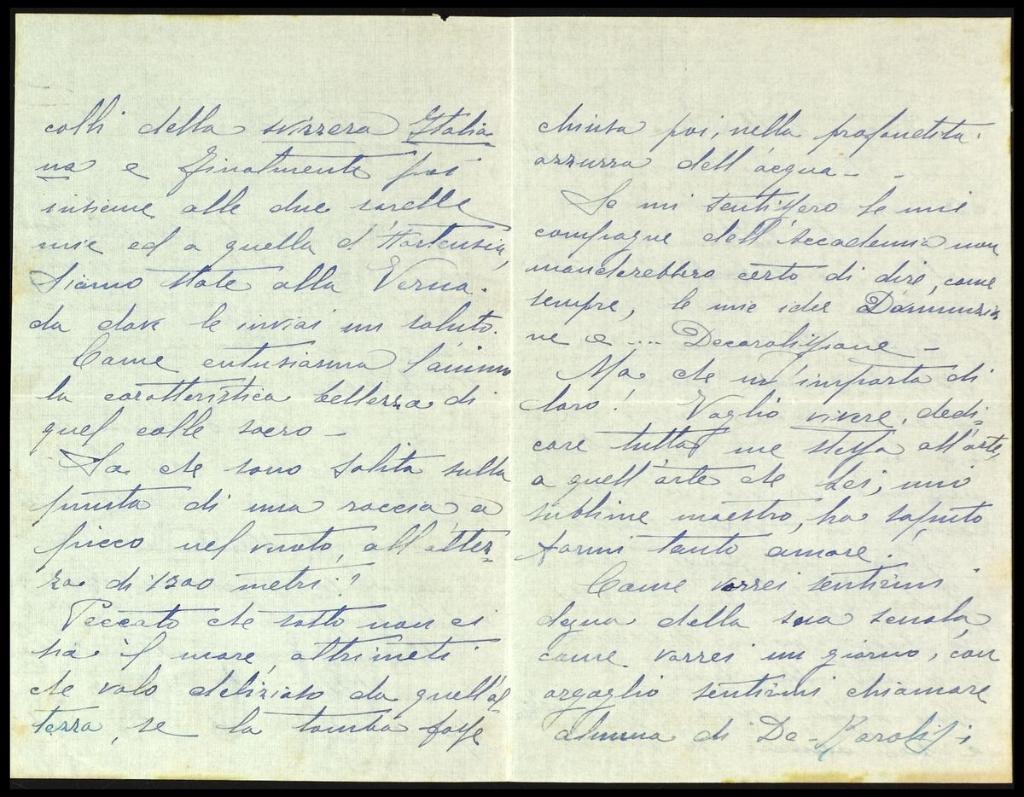 colli della svizzera Italia
na e finalmente poi
insieme alle due sorelle
mie ed a quella d'Hortensia,
siamo state alla Verna.
da dove le inviai un saluto.
Come entusiasma l'animo
la caratteristica bellezza di
quel colle sacro –
Sa che sono salita sulla
punta di una roccia a
picco nel vuoto, all'altez-
za di 1300 metri!?
Peccato che sotto non ci
sia il mare, altrimeti
che volo delizioso da quell'al
tezza, se la tomba fosse
chiusa poi, nella profondità
azzurra dell'acqua – –
Se mi sentissero le mie
compagne dell'Accademia non
mancherebbero certo di dire, come
sempre, le mie idee Dannunzia
ne e .... Decarolisiane –
Ma che m'importa di
loro! Voglio vivere, dedi-
care tutta me stessa all'arte,
a quell'arte che Lei, mio
sublime maestro, ha saputo
farmi tanto amare.
Come vorrei sentirmi
degna della sua scuola,
come vorrei un giorno, con
orgoglio sentirmi chiamare
alunna di De-Karolis;